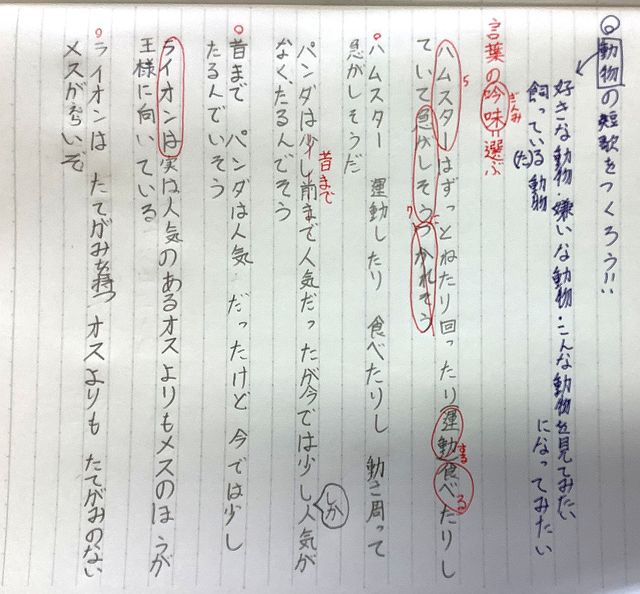 ◎動物の短歌をつくろう!!
好きな動物・嫌いな動物・こんな動物を見てみたい
になってみたい
飼っている動物
(た)
言葉の吟味=選ぶ
ぎんみ
ハムスターはずっとねたり回ったり運動食べたりし
5
する
る
ていて急がしそうつかれそう
7
に
ハムスター 運動したり 食べたりし 動き周って
急がしそうだ
パンダは少し前まで人気だったが今では少し人気が
昔まで
しか
なく、たるんでそう
昔まで パンダは人気 だったけど 今では少し
たるんでいそう
ライオンは実は人気のあるオスよりもメスのほうが
王様に向いている
ライオンは たてがみを持つ オスよりも たてがみのない
メスがえらいぞ